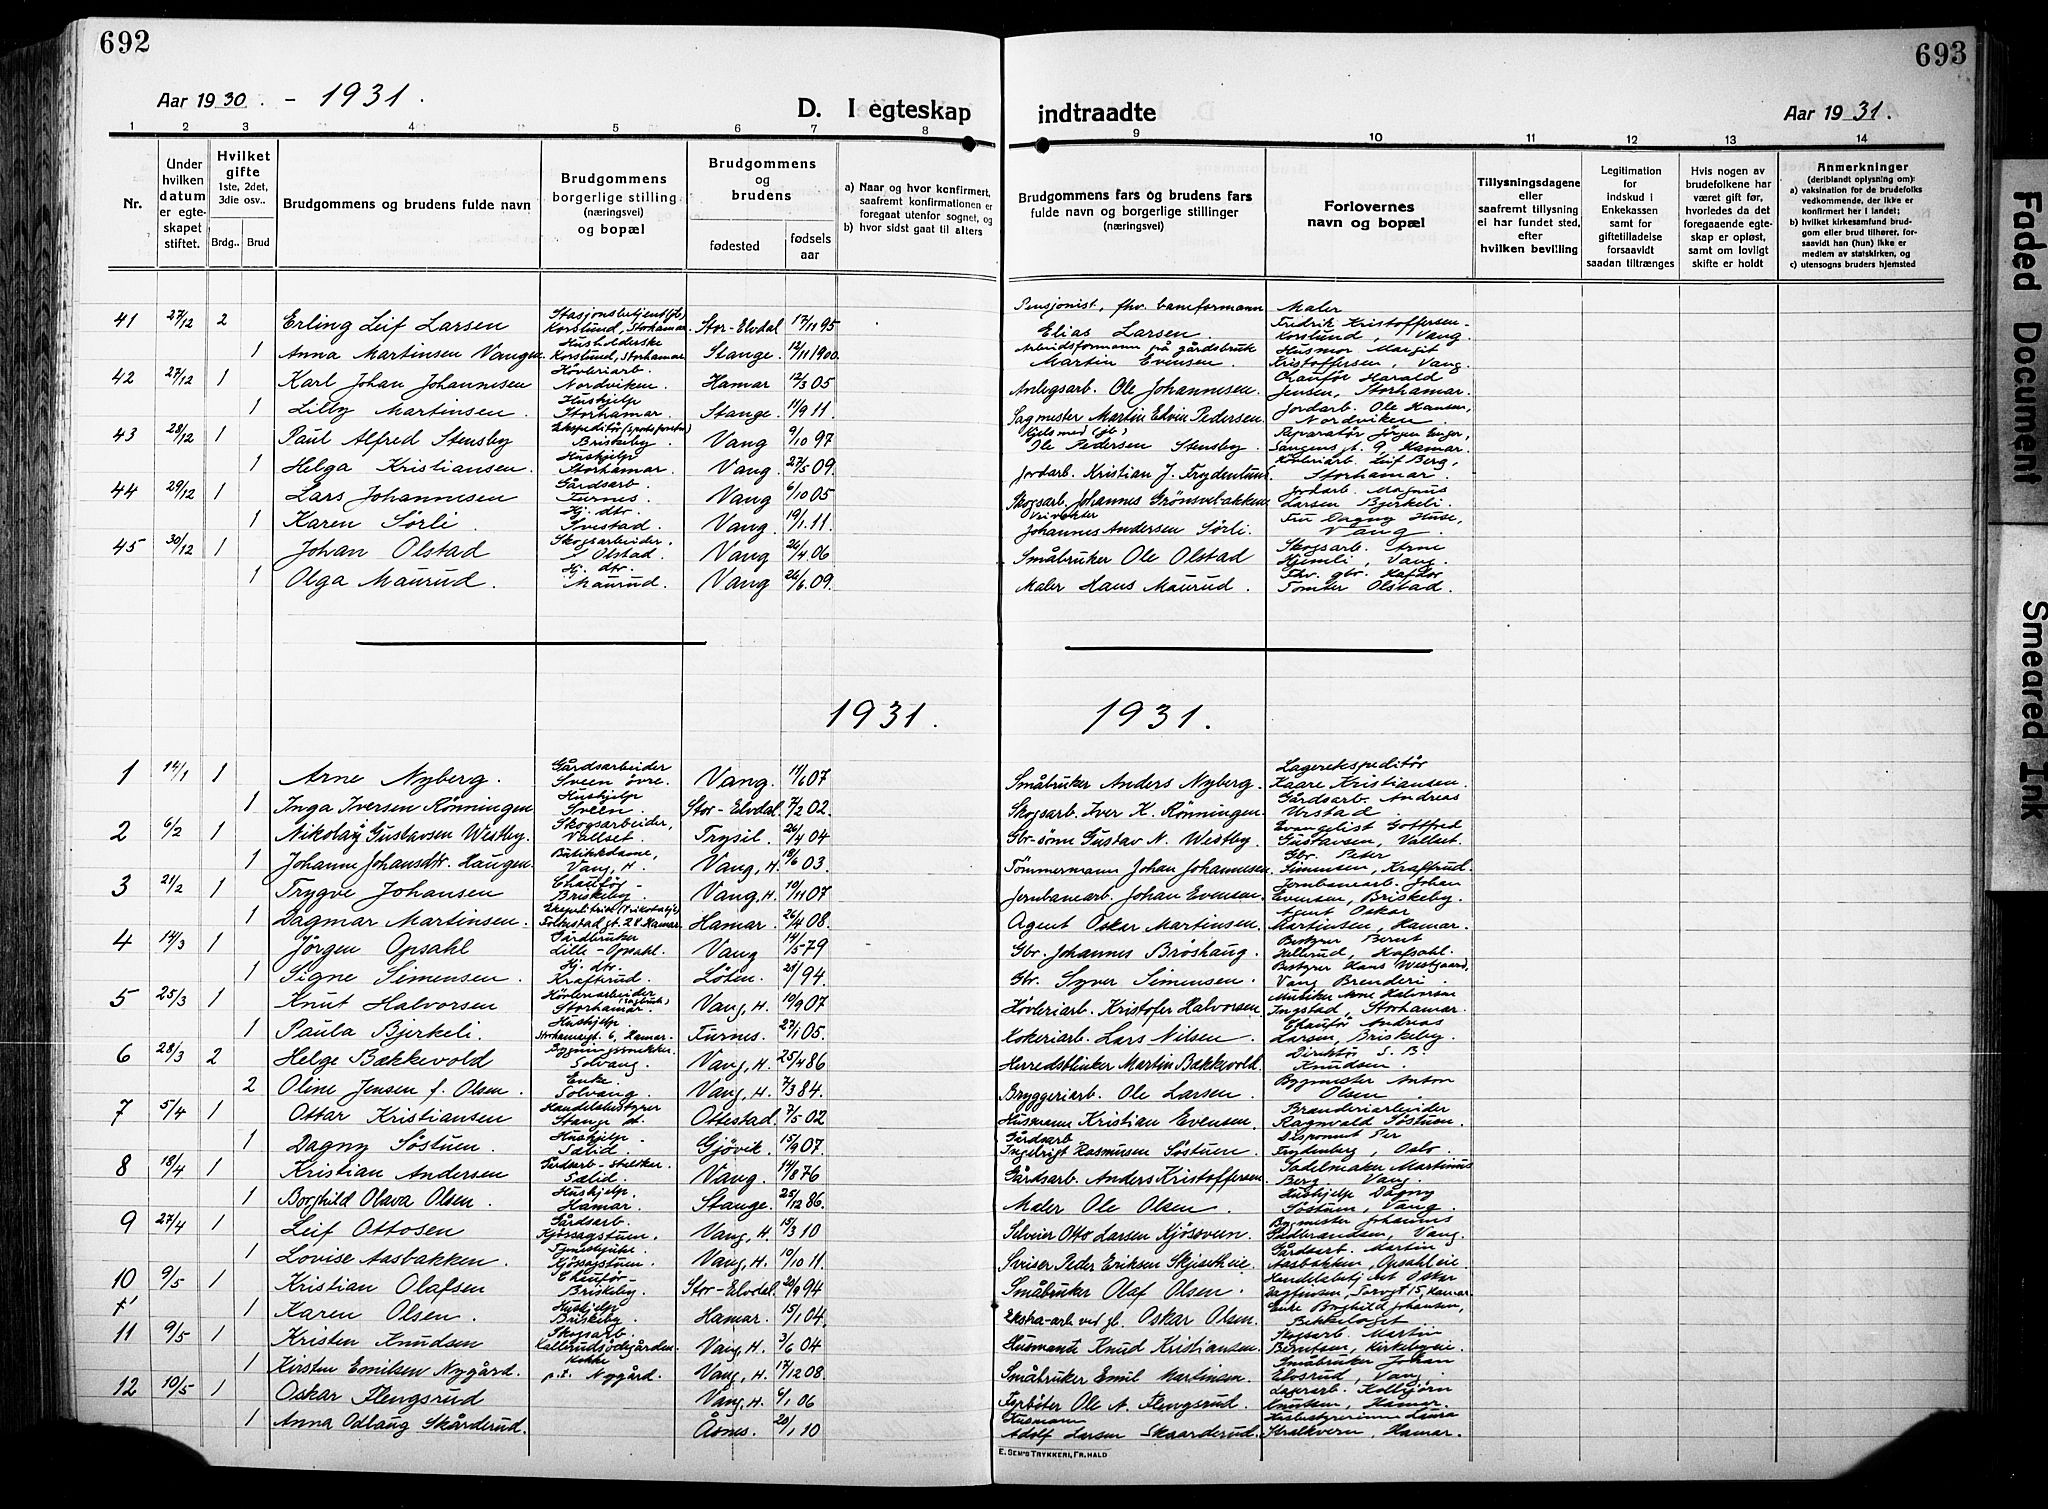 692
693
Aar 1930. - 1931.
D. I egteskap indtraadte
Aar 1931.
1 2 3 4 5 6 7 8 9 10 11 12 13 14
Nr.
Under hvilken datum er egteskapet stiftet.
Hvilket gifte 1ste, 2det, 3die osv..
Brdg.. Brud
Brudgommens og brudens fulde navn
Brudgommens borgerlige stilling (næringsvei) og bopæl
Brudgommens og brudens
fødested
fødselsaar
a) Naar og hvor konfirmert, saafremt konfirmationen er foregaat utenfor sognet, og
b) hvor sidst gaat til alters
Brudgommens fars og brudens fars fulde navn og borgerlige stillinger (næringsvei)
Forlovernes navn og bopæl
Tillysningsdagene eller saafremt tillysning ei har fundet sted, efter hvilken bevilling
Legitimation for indskud i Enkekassen samt for giftetilladelse forsaavidt saadan tiltrænges
Hvis nogen av brudefolkene har været gift før, hvorledes da det foregaaende egteskap er opløst, samt om lovligt skifte er holdt
Anmerkninger
(deriblandt oplysning om):
a) vaksination for de brudefolks vedkommende, der ikke er konfirmert her i landet;
b) hvilket kirkesamfund brudgom eller brud tilhører, forsaavidt han (hun) ikke er medlem av statskirken, og
c) utensogns bruders hjemsted
41 27/12 2 Erling Leif Larsen Korslund, Storhamar Stor-Elvdal 17/11 95 Pensjonist, fhv. baneformann Elias Larsen Maler Fredrik Kristoffersen Korslund, Vang
1 Anna Martinsen Vangen Husholderske Korslund, Storhamar Stange 12/11 1900 Arbeidsformann på gårdsbruk Martin Evensen Husmor Margit Kristoffersen, Vang
42 27/12 1 Karl Johan Johannesen Høvleriarb. Nordviken. Hamar 12/3 05 Anlegsarb. Ole Johannesen. Chaufør Harald Jensen, Storhamar.
1 Lilly Martinsen Hushjelp Storhamar. Stange 11/9 11 Sagmester Martin Edvin Pedersen. Jordarb. Ole Hansen, Nordviken.
43 28/12 1 Paul Alfred Stensby Briskeby. Vang 9/10 97 Ole Pedersen Stensby. Reparatør Jörgen Enger, Hamar.
1 Helga Kristiansen. Hushjelp Storhamar. Vang 27/5 09 Jordarb. Kristian J. Frydenlund Høvleriarb. Leif Berg, Storhamar.
44 29/12 1 Lars Johannesen Gårdsarb. Furnes. Vang 6/10 05 Skogsarb. Johannes Grønsvebakken Jordarb. Magnus Larsen Bjerkeli.
1 Karen Sörli. Hj. dtr. Vang 19/1 11 Johannes Andersen Sörli. Fru Dagny Huse, Vang.
45 30/12 1 Johan Olstad Skogsarbeider, Olstad. Vang 26/4 06 Småbruker Ole Olstad Skogsarb. Arne Hjemli, Vang.
1 Olga Maurud. Hj. dtr. Maurud. Vang 26/6 09. Maler Hans Maurud. Fhv. gbr. Tomter Olstad.
1931. 1931.
1 14/1 1 Arne Nyberg. Gårdsarbeider Sveen övre. Vang. 11/6 07 Småbruker Anders Nyberg. Lagerekspeditör Kaare Kristiansen.
1 Inga Iversen Rönningen Hushjelp Sveen. Stor-Elvdal 7/2 02. Skogsarb. Iver K. Rönningen. Gårdsarb. Andreas
2 6/2 1 Nikolay Gustavsen Westby. Skogsarbeider, Vallset. Trysil. 26/4 04 Gbr-sönn Gustav N. Westby. Evangelist Gottfred Gustavsen, Vallset.
1 Johanne Johansdtr. Haugen. Butikkdame, Vang, H. Vang, H. 18/6 03 Tömmermann Johan Johannesen Gbr. Peter Simensen, Kraftrud.
3 21/2 1 Trygve Johansen Chaufør Briskeby. Vang, H. 10/11 07 Jernbanearb. Johan Evensen. Jernbanearb. Johan Evensen, Briskeby.
1 Dagmar Martinsen. gt. 24 Hamar. Hamar. 26/4 08. Agent Oskar Martinsen. Agent Oskar Martinsen, Hamar.
4 14/3 1 Jörgen Opsahl Gårdbruker Lille-Opsahl. Vang 14/5 79 Gbr. Johannes Bröshaug. Bestyrer Bernt Hellerud, Hafsahl.
1 Signe Simensen. Hj. dtr. Kraftrud. Löten. 94 Gbr. Syver Simensen. Bestyrer Hans Westgaard, Vang Brenderi.
5 25/3 1 Knut Halvorsen Høvleriarbeider Storhamar. Vang, H. 10/9 07 Høvleriarb. Kristofer Halvorsen Musiker Arne Halvorsen Ingstad, Storhamar.
1 Paula Bjerkeli. Hushjelp. Storhamargt. 6, Hamar. Furnes. 27/1 05. Kokeriarb. Lars Nilsen. Chaufør Andreas Larsen, Briskeby.
6 28/3 2 Helge Bakkevold Bygningssnekker Solvang. Vang, H. 25/4 86 Herredsblinker Martin Bakkevold. Direktör S. B. Knudsen.
2 Oline Jensen f. Olsen. Enke. Solvang. Vang, H. 7/3 84. Bryggeriarb. Ole Larsen. Bygmester Anton Olsen
7 5/4 1 Ottar Kristiansen Handelsbestyrer Stange st. Ottestad. 7/5 02 Husmann Kristian Evensen. Brenderiarbeider Ragnvald Söstuen.
1 Dagny Söstuen. Hushjelp Sælid. Gjövik. 15/9 07. Gårdsarb. Ingebrigt Rasmussen Söstuen. Disponent Per Frydenberg, Oslo.
8 18/4 1 Kristian Andersen Sælid. Vang. 14/8 76 Gårdsarb. Anders Kristoffersen. Sadelmaker Martinus Berg, Vang.
1 Borghild Olava Olsen. Hushjelp. Hamar. Stange. 25/12 86. Maler Ole Olsen. Hushjelp Dagny Söstuen, Vang.
9 27/4 1 Leif Ottosen Gårdsarb. Kjössagstuen. Vang, H. 15/3 10 Otto Larsen Bygmester Johannes Gudbrandsen, Vang.
1 Lovise Aasbakken. Kjössagstuen. Vang, H. 10/10 11. Sveiser Peder Eriksen Gårdsarb. Martin Aasbakken, Opsahleie.
10 9/5 1 Kristian Olafsen Chaufør Briskeby. Stor-Elvdal. 20/9 94 Småbruker Olaf Olsen. Handelsbetj. Oskar Dagfinsen, Torvgt 15, Hamar
1 Karen Olsen. Hushjelp Briskeby. Hamar. 15/1 04. Ekstra-arb ved jb. Oskar Olsen. Enke Borghild Johansen, Bekkelaget
11 9/5 1 Kristen Knudsen Skogsarb. Vang, H. 3/6 04 Husmann Knud Kristiansen Skogsarb. Martin Berntsen, Kirkebyeie.
1 Kirsten Emilsen Nygård. Kokke p.t. Nygård. Vang, H. 17/12 08. Småbruker Emil Martinsen. Småbruker Johan Elvsrud, Vang.
12 10/5 1 Oskar Flengsrud Vang, H. 6/1 06 Fyrböter Ole A. Flengsrud. Lagerarb. Kolbjörn Knutsen, Hamar.
1 Anna Odlaug Skårderud. Åsnes. 20/1 10 Husmann Adolf Larsen Skaarderud. Laura Stralkvern, Hamar.
E. SEM'S TRYKKERI, FR.HALD
Faded Document
Smeared Ink